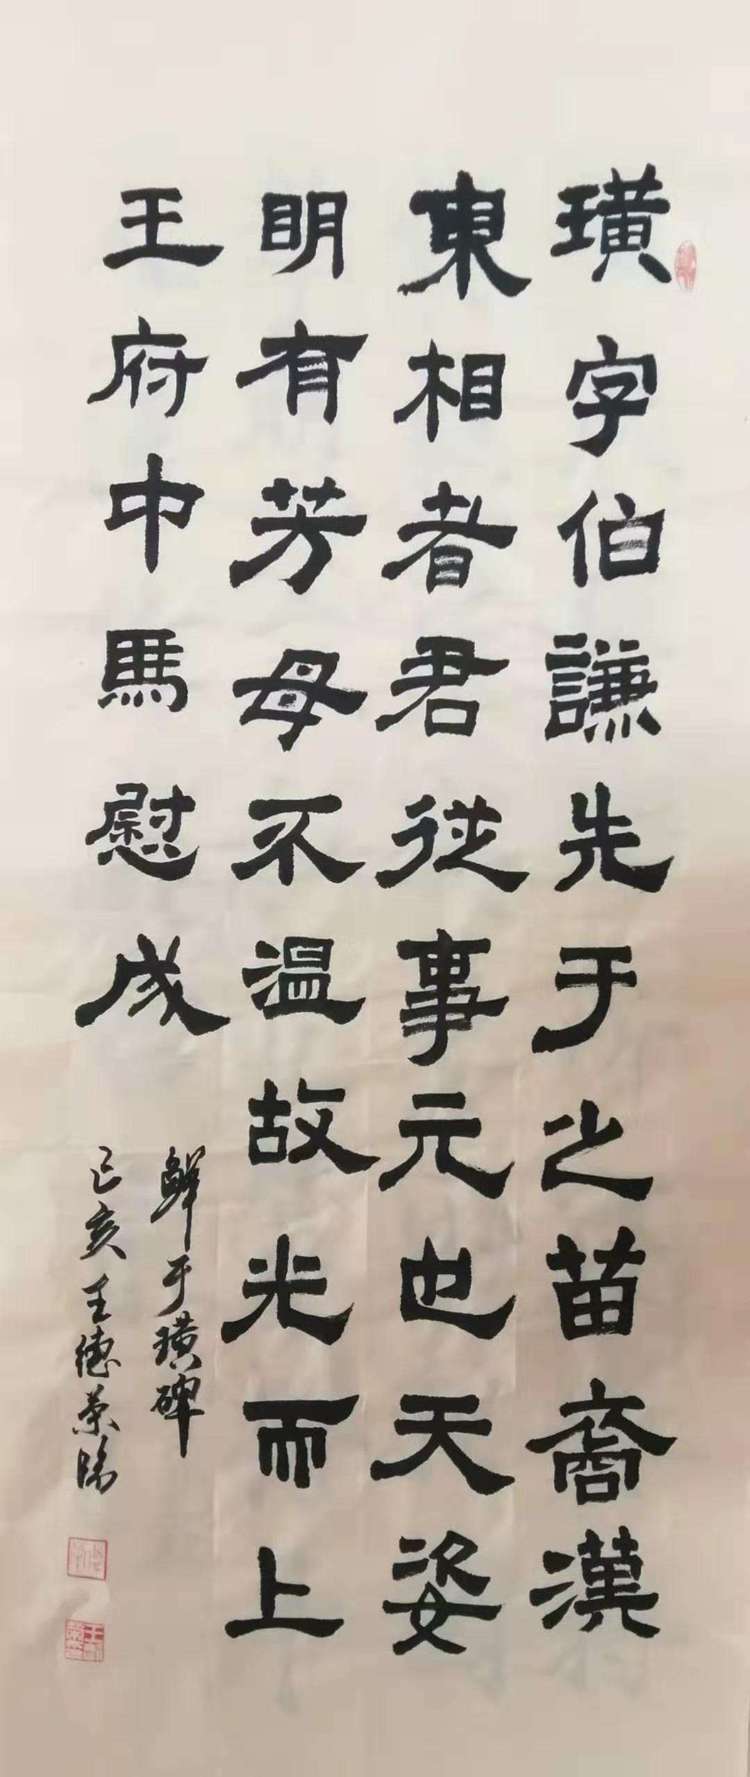 璜字伯謙先于之苗裔漢
東相者君從事元也天姿
明有芳母不温故光而上
王府中馬慰成
鮮于璜碑
己亥王德荣臨